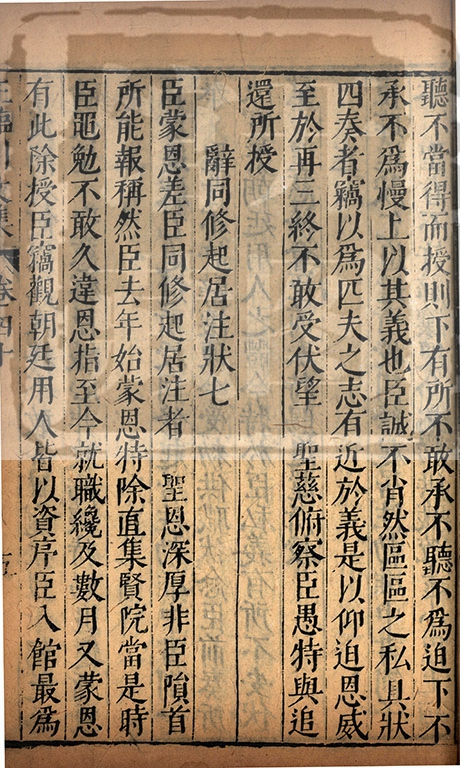 聽不當得而授則下有所不敢承不聽不爲迫下不
承不爲慢上以其義也臣誠不肖然區區之私具狀
四奏者竊以爲匹夫之志有近於義是以仰迫恩威
至於再三終不敢受伏望聖慈俯察臣愚特與追
還所授
辭同修起居注狀七
臣蒙恩差臣同修起居注者聖恩深厚非臣隕首
所能報稱然臣去年始蒙恩特除直集賢院當是時
臣黽勉不敢久違恩指至今就職纔及數月又蒙恩
有此除授臣竊觀朝廷用人皆以資序臣入館最爲
王臨川文集 卷四十